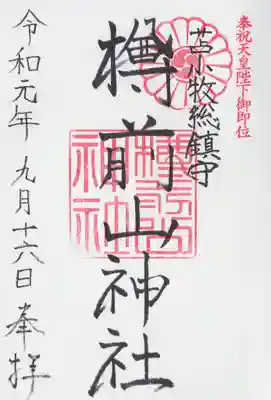 奉祝天皇陛下御即位
苫小牧総鎮守
樽前山神社
令和元年九月十六日奉拝